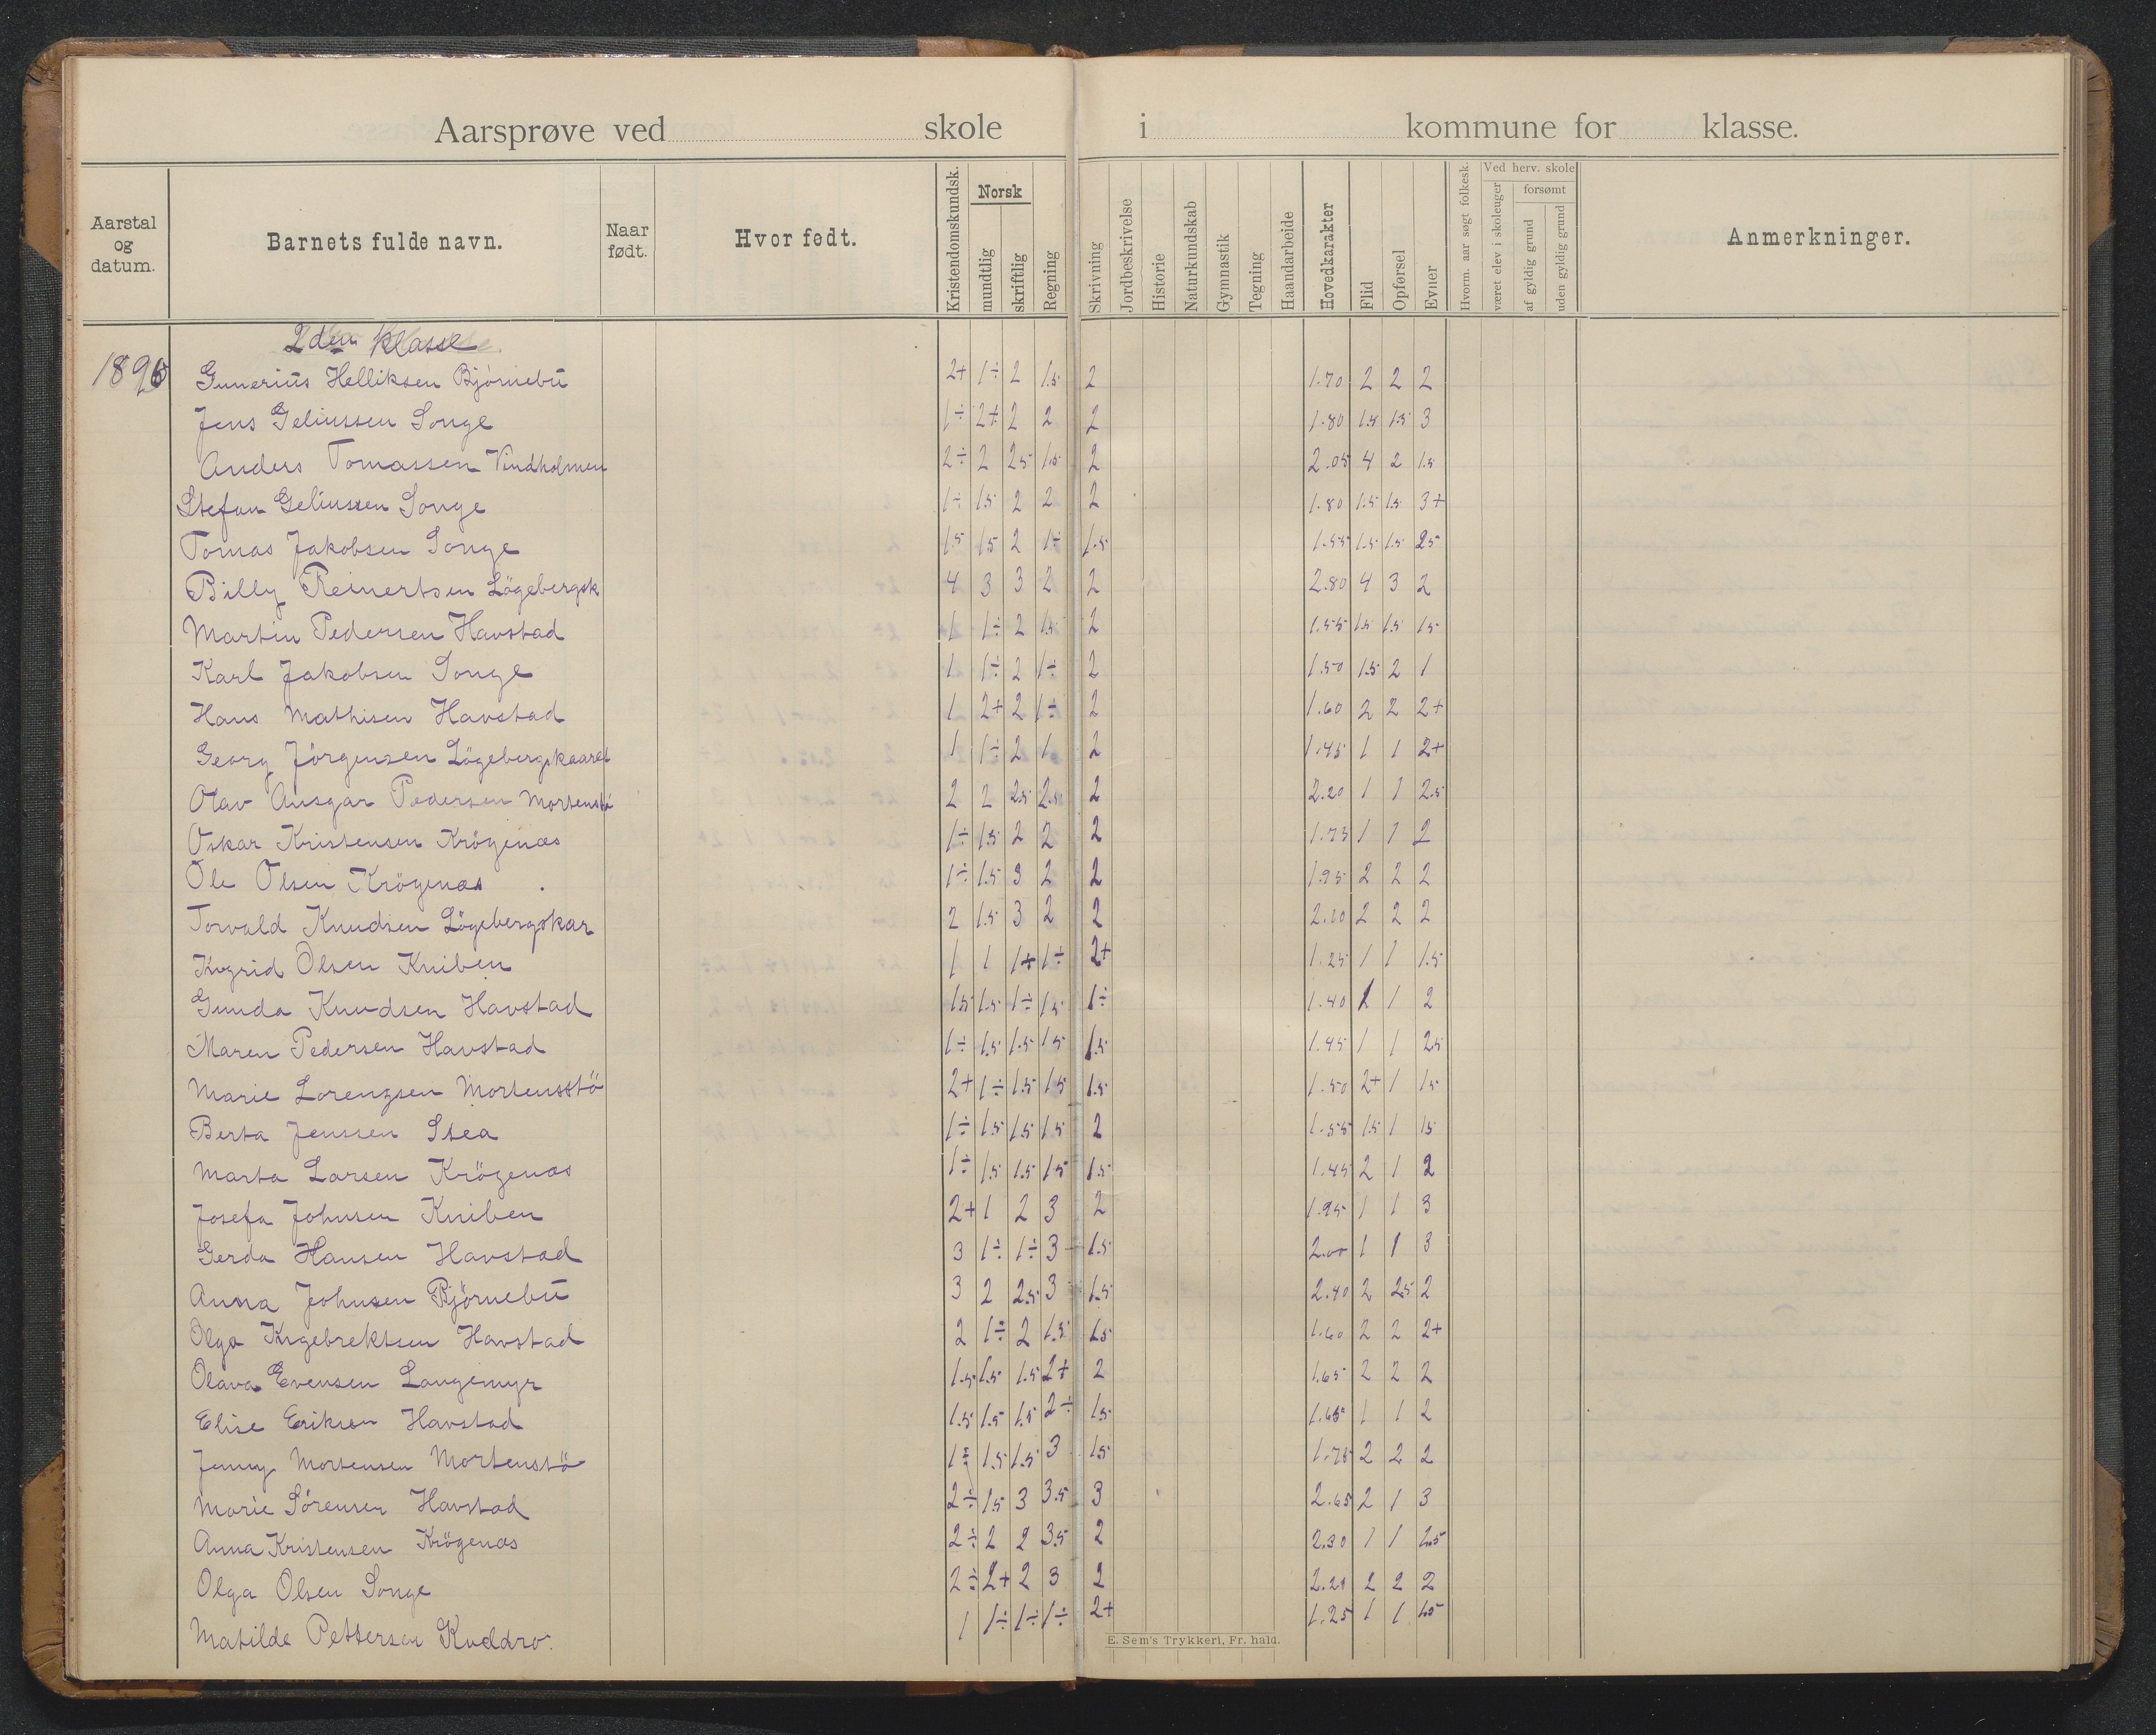 Aarsprøve ved skole i kommune for klasse.
Aarstal og datum. Barnets fulde navn. Naar født. Hvor født. Kristendomskundsk. Norsk mundtlig skriftlig Regning Skrivning Jordbeskrivelse Historie Naturkundskab Gymnastik Tegning Haandarbeide Hovedkarakter Flid Opførsel Evner Hvorm. aar søgt folkesk. Ved herv. skole været elev i skoleuger forsømt af gyldig grund uden gyldig grund Anmerkninger.
2den Klasse
1896 Gunerius Helliksen Bjørnebu 2+ 1÷ 2 1.5 2 1.70 2 2 2
Jens Geliussen Songe 1÷ 2+ 2 2 2 1.80 1.5 1.5 3
Anders Tomassen Vindholmen 2÷ 2 2.5 1.5 2 2.05 4 2 1.5
Stefan Geliussen Songe 1÷ 1.5 2 2 2 1.80 1.5 1.5 3+
Tomas Jakobsen Songe 1.5 1.5 2 1÷ 1.5 1.55 1.5 1.5 2.5
Billy Reinertsen Lögebergsk 4 3 3 2 2 2.80 4 3 2
Martin Pedersen Havstad 1 1÷ 2 1.5 2 1.55 1.5 1.5 1.5
Karl Jakobsen Songe 1 1÷ 2 1÷ 2 1.50 1.5 2 1
Hans Mathisen Havstad 1 2+ 2 1÷ 2 1.60 2 2 2+
Georg Jörgensen Lögebergskaaret 1 1÷ 2 1 2 1.45 1 1 2+
Olav Ansgar Pedersen Mortenstö 2 2 2.5 2.5 2 2.20 1 1 2.5
Oskar Kristensen Krögenæs 1÷ 1.5 2 2 2 1.75 1 1 2
Ole Olsen Krögenæs 1÷ 1.5 3 2 2 1.95 2 2 2
Torvald Knudsen Lögebergskar 2 1.5 3 2 2 2.10 2 2 2
Ingrid Olsen Kniben 1 1 1+ 1÷ 2+ 1.25 1 1 1.5
Gunda Knudsen Havstad 1.5 1.5 1÷ 1.5 1÷ 1.40 1 1 2
Maren Pedersen Havstad 1÷ 1.5 1.5 1.5 1.5 1.45 1 1 2.5
Marie Lorengsen Mortensstö 2+ 1÷ 1.5 1.5 1.5 1.50 2+ 1 1.5
Berta Jenssen Stea 1÷ 1.5 1.5 1.5 2 1.55 1.5 1 1.5
Marta Larsen Krögenæs 1÷ 1.5 1.5 1.5 1.5 1.45 2 1 2
Josefa Johnsen Kniben 2+ 1 2 3 2 1.95 1 1 3
Gerda Hansen Havstad 3 1÷ 1÷ 3 1.5 2.00 1 1 3
Anna Johnsen Björnebu 3 2 2.5 3 1.5 2.40 2 2.5 2
Olga Ingebrektsen Havstad 2 1÷ 2 1.5 1.5 1.60 2 2 2+
Olava Evensen Langemyr 1.5 1.5 1.5 2+ 2 1.65 2 2 2
Elise Eriksen Havstad 1.5 1.5 1.5 2÷ 1.5 1.65 1 1 2
Jenny Mortensen Mortenstö 1÷ 1.5 1.5 3 1.5 1.75 2 2 2
Marie Sörensen Havstad 2÷ 1.5 3 3.5 3 2.65 2 1 3
Anna Kristensen Krögenæs 2÷ 2 2 3.5 2 2.30 1 1 2.5
Olga Olsen Songe 2÷ 2+ 2 3 2 2.20 2 2 2
Matilde Pettersen Kuddro. 1 1÷ 1÷ 1÷ 2+ 1.25 1 1 1.5
E. Sem's Trykkeri, Fr. hald.